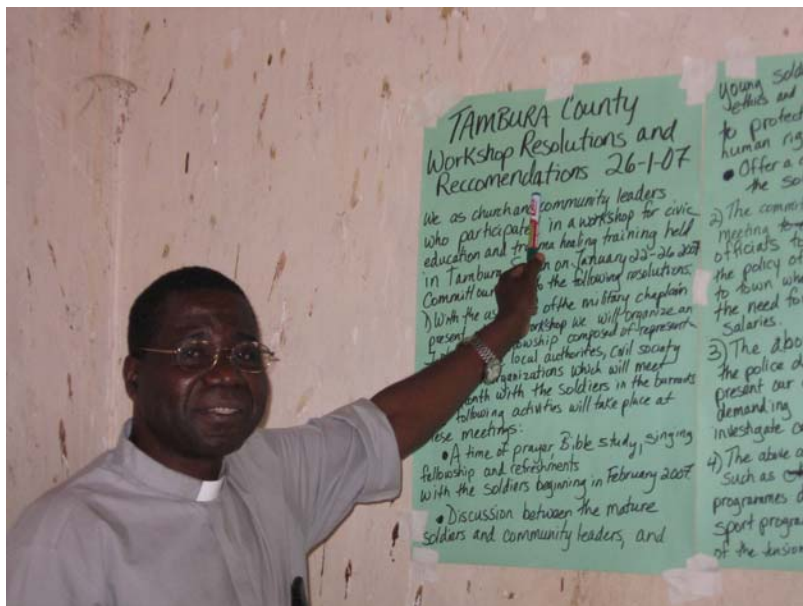 TAMBURA County
Workshop Resolutions and
Reccomendations 26-1-07
We as church and community leaders
who participated in a workshop for civic
education and trauma healing training held
in Tambura on January 22-26 2007
Committ our to the following resolutions.
1) With the as of the military chaplain
present workshop we will organize an
owship composed of represent-
local authorites, civil society
organizations which will meet
onth with the soldiers in the barracks
following activities will take place at
these meetings:
• A time of prayer, Bible study, singing
fellowship and refreshments
with the soldiers beginning in February 2007.
• Discussion between the mature
soldiers and community leaders, and
young sold
ethics and
to protect
human rig
• Offer a
the so
2) The comm
meeting to
officials to
the policy of
to town wh
the need for
salaries.
3) The abo
the police d
present our
demanding
investigate c
4) The above a
such as
programmes o
sport progra
of the tension